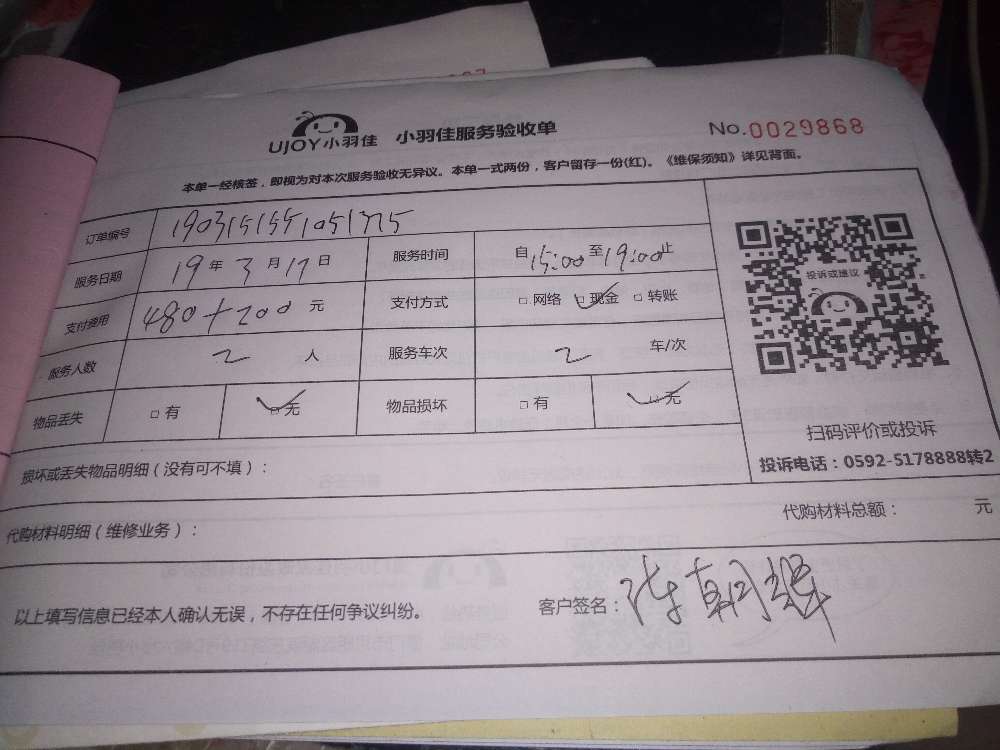 UJOY小羽佳 小羽佳服务验收单 No.0029868
本单一经核签，即视为对本次服务验收无异议。本单一式两份，客户留存一份(红)。《维保须知》详见背面。
订单编号
服务日期 19年3月17日 服务时间 自15:00至19:00止
支付费用 480+200 元 支付方式 □网络 □现金 □转账
服务人数 2 人 服务车次 2 车/次
物品丢失 □有 □无 物品损坏 □有 □无
投诉或建议
扫码评价或投诉
投诉电话：0592-5178888转2
损坏或丢失物品明细（没有可不填）：
代购材料明细（维修业务）： 代购材料总额： 元
以上填写信息已经本人确认无误，不存在任何争议纠纷。 客户签名：